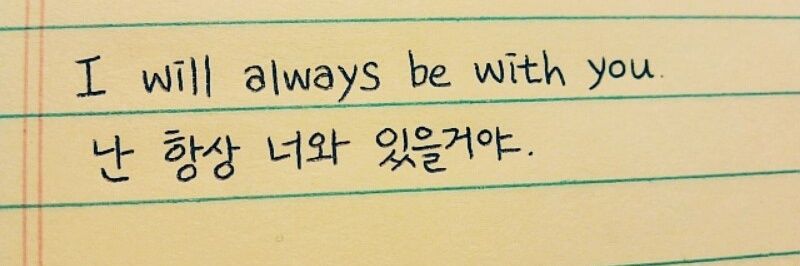 I will always be with you.
난 항상 너와 있을거야.